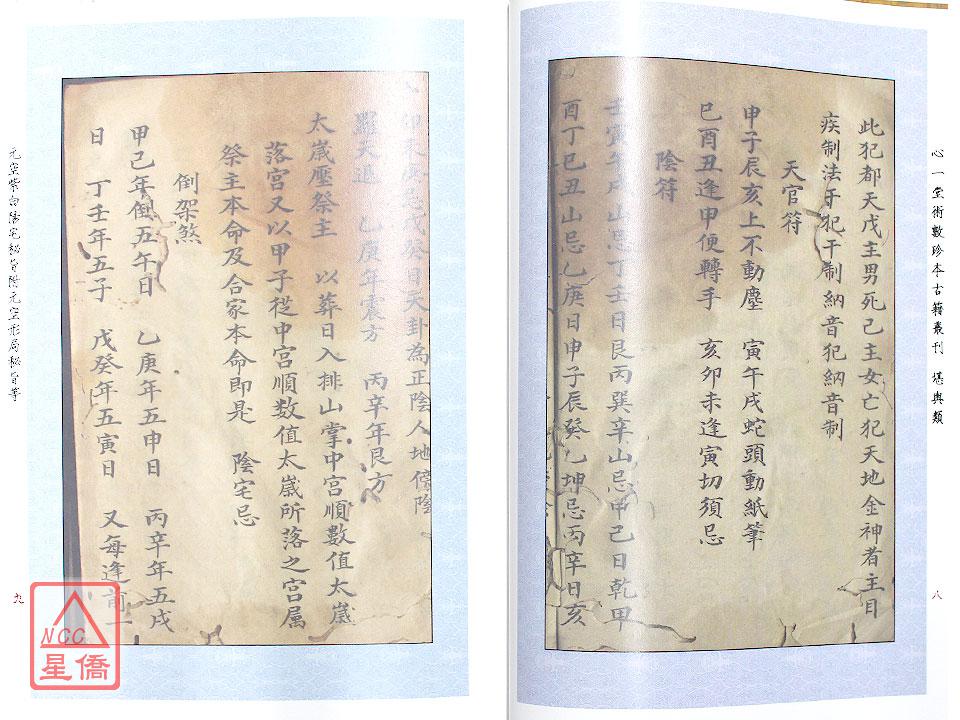 心一堂術數珍本古籍叢刊 堪輿類
八
此犯都天戊主男死己主女亡犯天地金神者主目
疾制法于犯干制納音犯納音制
天官符
申子辰亥上不動塵 寅午戌蛇頭動紙筆
巳酉丑逢申便轉手 亥卯未逢寅切須忌
陰符
壬寅午戌山忌丁壬日艮丙巽辛山忌甲己日乾甲
酉丁巳丑山忌乙庚日申子辰癸乙坤忌丙辛日亥
卯未庚忌戊癸日天卦為正陰人地傍陰
羅天退 乙庚年震方 丙辛年艮方
太歲壓祭主 以葬日入排山掌中宮順數值太歲
落宮又以甲子從中宮順數值太歲所落之宮屬
祭主本命及合家本命即是 陰宅忌
倒架煞
甲己年倒五午日 乙庚年五申日 丙辛年五戌
日 丁壬年五子 戊癸年五寅日 又每逢前一
元空紫白陽宅秘旨附元空形局秘旨等
九
NCC
星僑